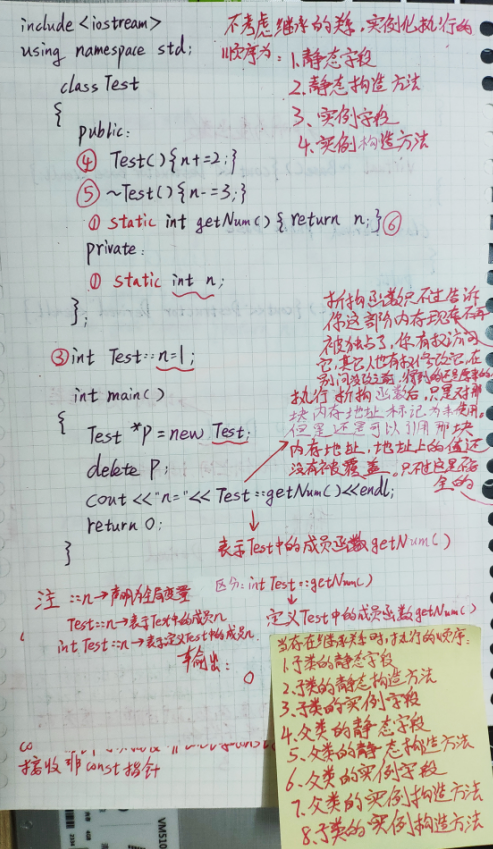 include <iostream>
using namespace std;
class Test
{
public:
④ Test(){n+=2;}
⑤ ~Test(){n-=3;}
① static int getNum(){return n;}⑥
private:
① static int n;
};
③int Test::n=1;
int main()
{
Test *p=new Test;
delete p;
cout<<"n="<<Test::getNum()<<endl;
return 0;
}
不考虑继承的关系,实例化执行的
顺序为:1.静态字段
2.静态构造方法
3、实例字段
4.实例构造方法
析构函数只不过告诉
你这部分内存现在不再
被独占了,你有权访问
它,其它人也有权修改它,在
执行析构函数后,只是对那
块内存地址标记为未使用,
但是还是可以引用那块
内存地址,地址上的值还
没有被覆盖。只不过是不安
全的
表示Test中的成员函数getNum()
区分:int Test::getNum()
定义Test中的成员函数getNum()
注 ::n→声明为全局变量
Test::n→表示Test中的成员n
int Test::n→表示定义Test中的成员n
输出:
0
接收非const指针
当存在继承关系时,执行的顺序:
1.子类的静态字段
2.子类的静态构造方法
3.子类的实例字段
4.父类的静态字段
5.父类的静态构造方法
6.父类的实例字段
7.父类的实例构造方法
8.子类的实例构造方法
VM510